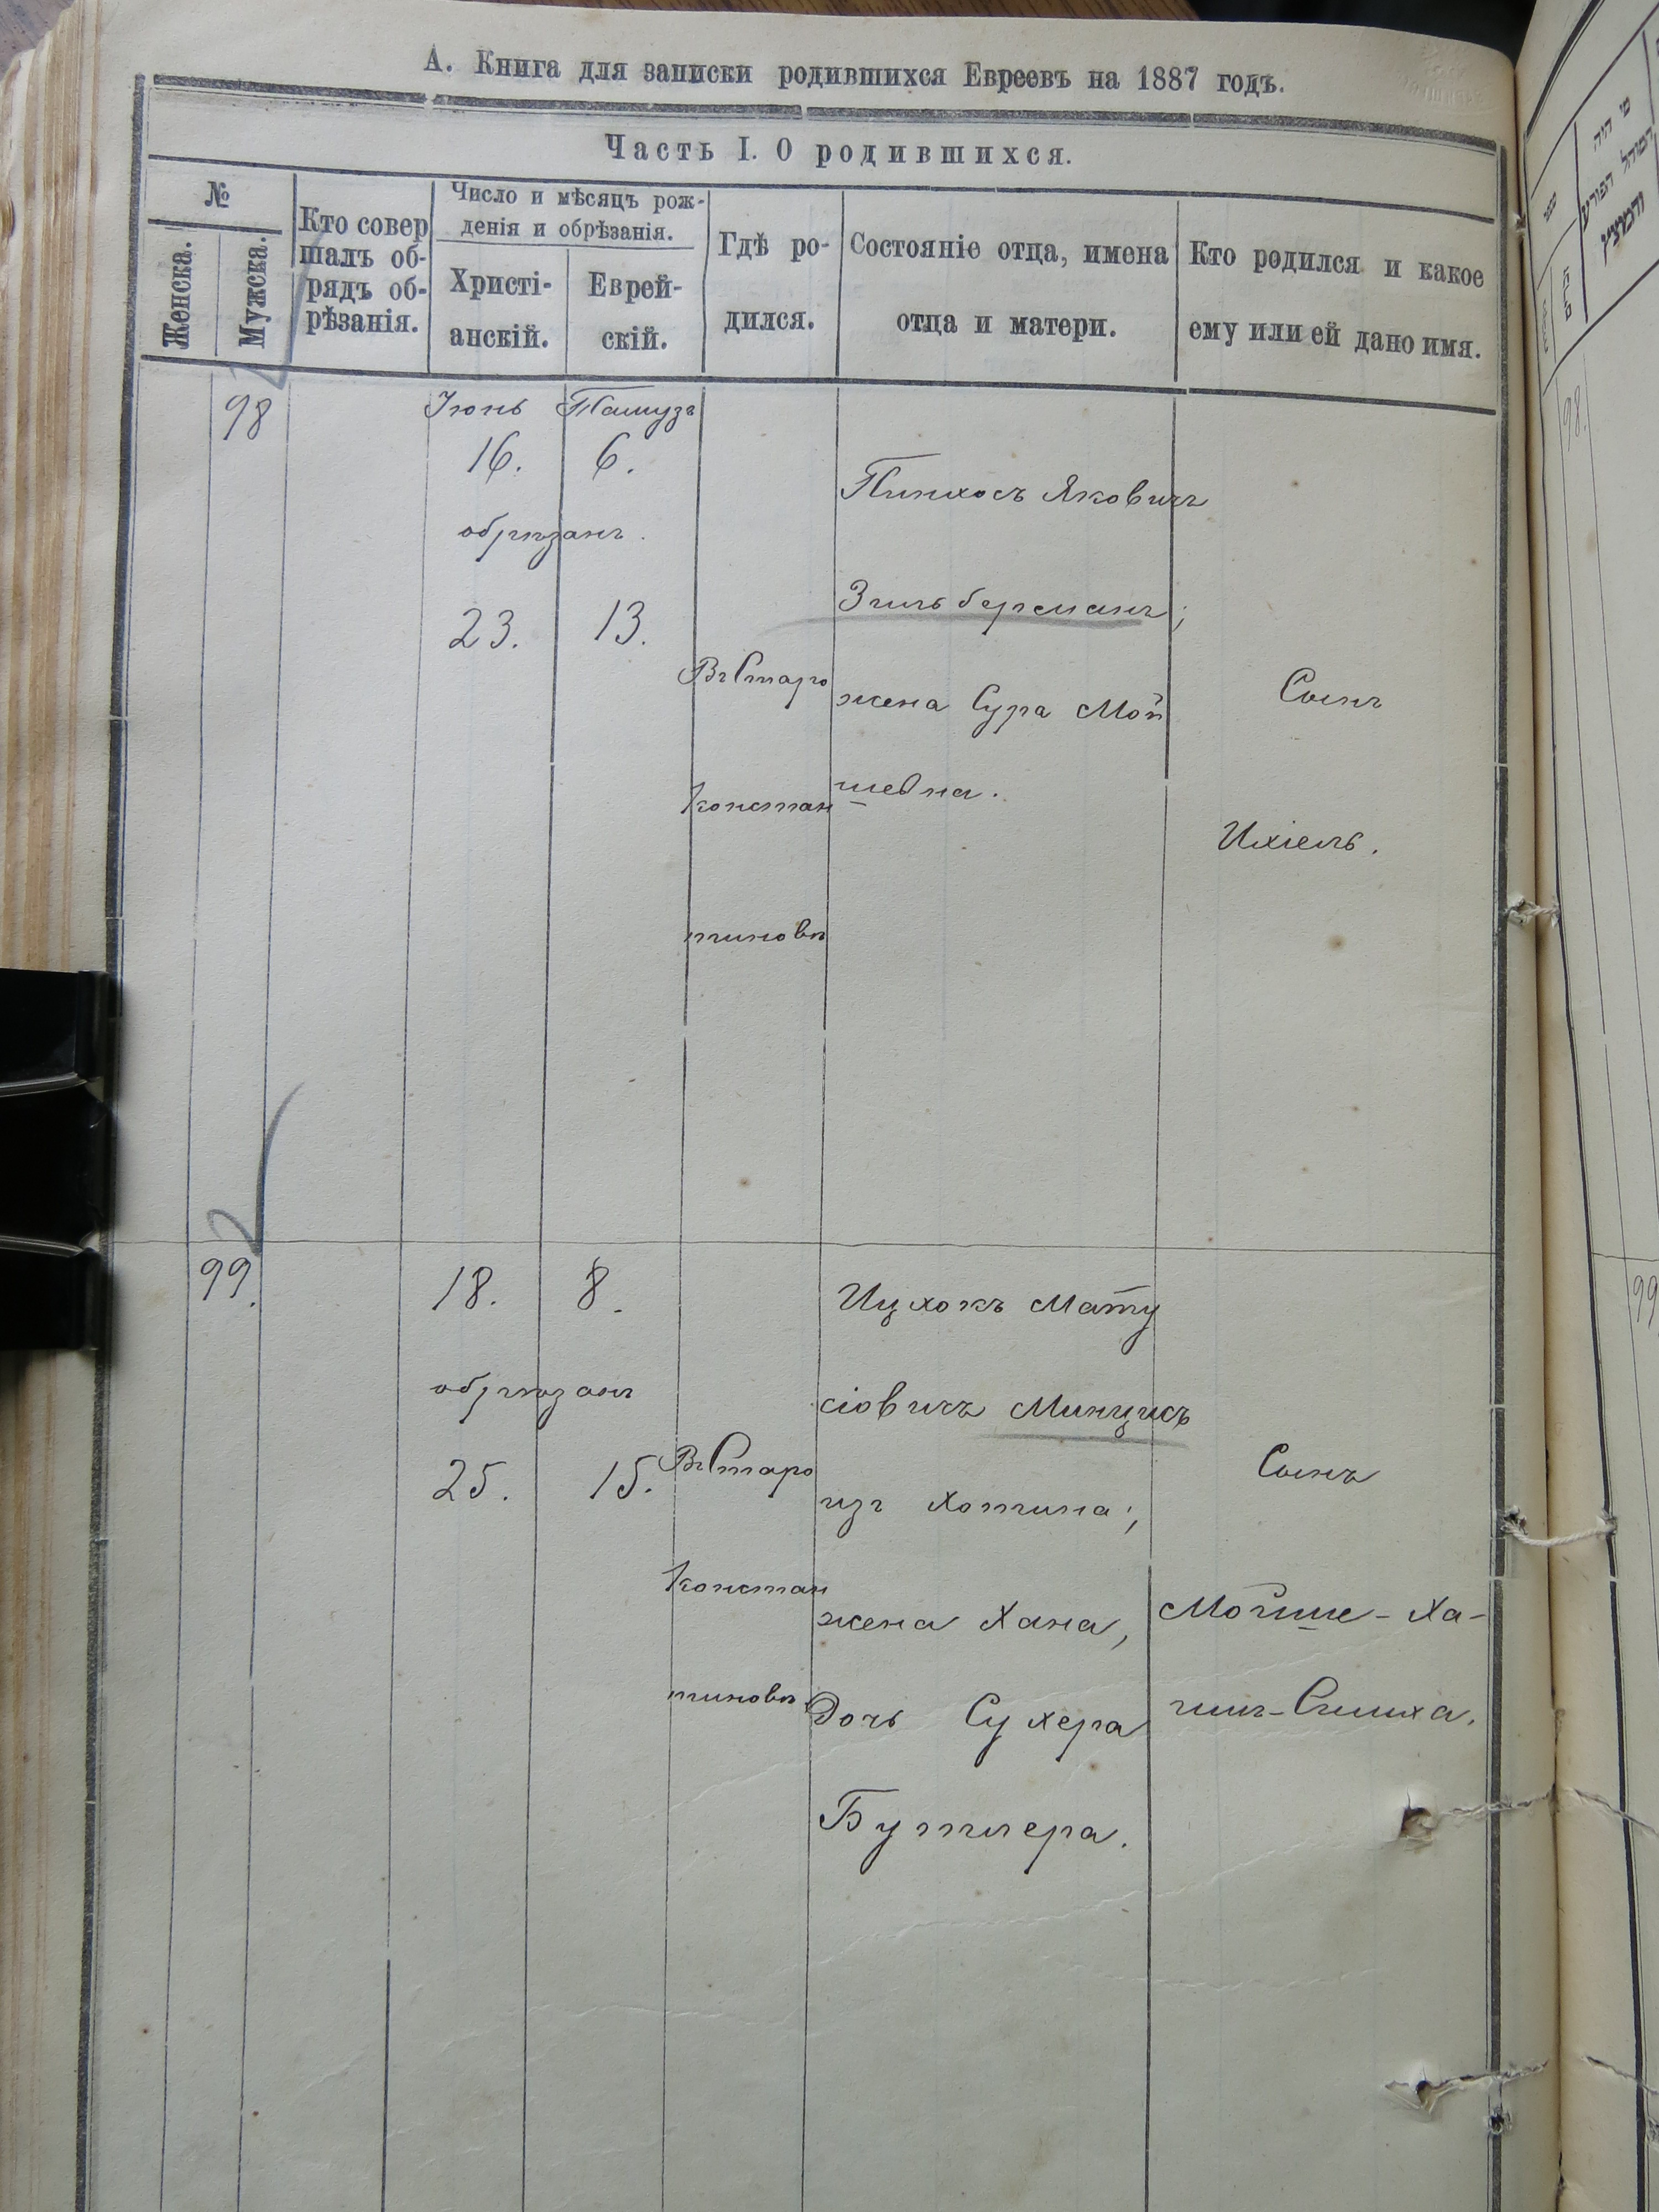 А. Книга для записки родившихся Евреевъ на 1887 годъ.
Часть I. О родившихся.
№
Женска.
Мужска.
Кто совер
шалъ об-
рядъ об-
рѣзанія.
Число и мѣсяцъ рож-
денія и обрѣзанія.
Христі-
анскій.
Еврей-
скій.
Гдѣ ро-
дился.
Состояніе отца, имена
отца и матери.
Кто родился и какое
ему или ей дано имя.
98
Іюнь Тамузъ
16. 6.
обрѣзанъ.
23. 13.
Въ Старо
констан
тиновѣ
Пинхосъ Яковичъ
Зильберманъ;
жена Сура Мой
шевна.
Сынъ
Ихіель.
99.
18. 8.
обрѣзанъ
25. 15.
Въ Старо
констан
тиновѣ
Ицхокъ Мату
сіовичъ Минцисъ
изъ Хотина;
жена Хана,
дочь Сухера
Бутлера.
Сынъ
Мойше-Ха-
им-Симха.
98.
99